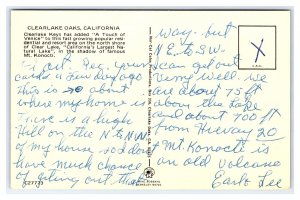 CLEARLAKE OAKS, CALIFORNIA
Clearlake Keys has added "A Touch of
Venice" to this fast growing popular res-
idential and resort area on the north shore
of Clear Lake, "California's Largest Na-
tural Lake", in the shadow of famous
Mt. Konocti.
just
Your
card a few day ago
This is about
where my home is
There is a high
Hill on the N to NW
of my house so don't
have much chance
of getting out that
way. but
N.E. to S.W.
can get out
Very well. we
are about 75 ft
above the lake
and about 700 ft
from Hiway 20
Mt. Konocti is
an old Volcano
Earl Lee
X